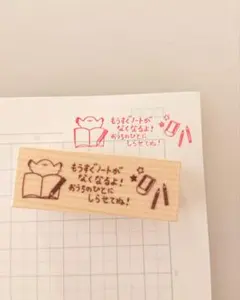 もうすぐノートが
なくなるよ！
おうちのひとに
しらせてね！
もうすぐノートが
なくなるよ！
おうちのひとに
しらせてね！